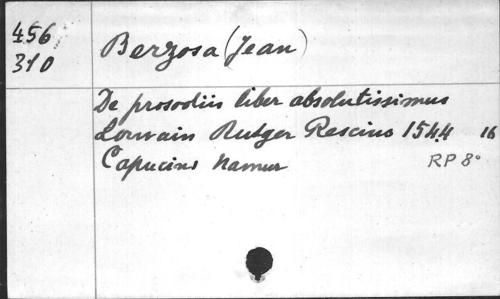 456
310
Berzosa (Jean)
De prosodiis liber absolutissimus
Louvain Rutger Rescius 1544 16
Capucins Namur RP 8°